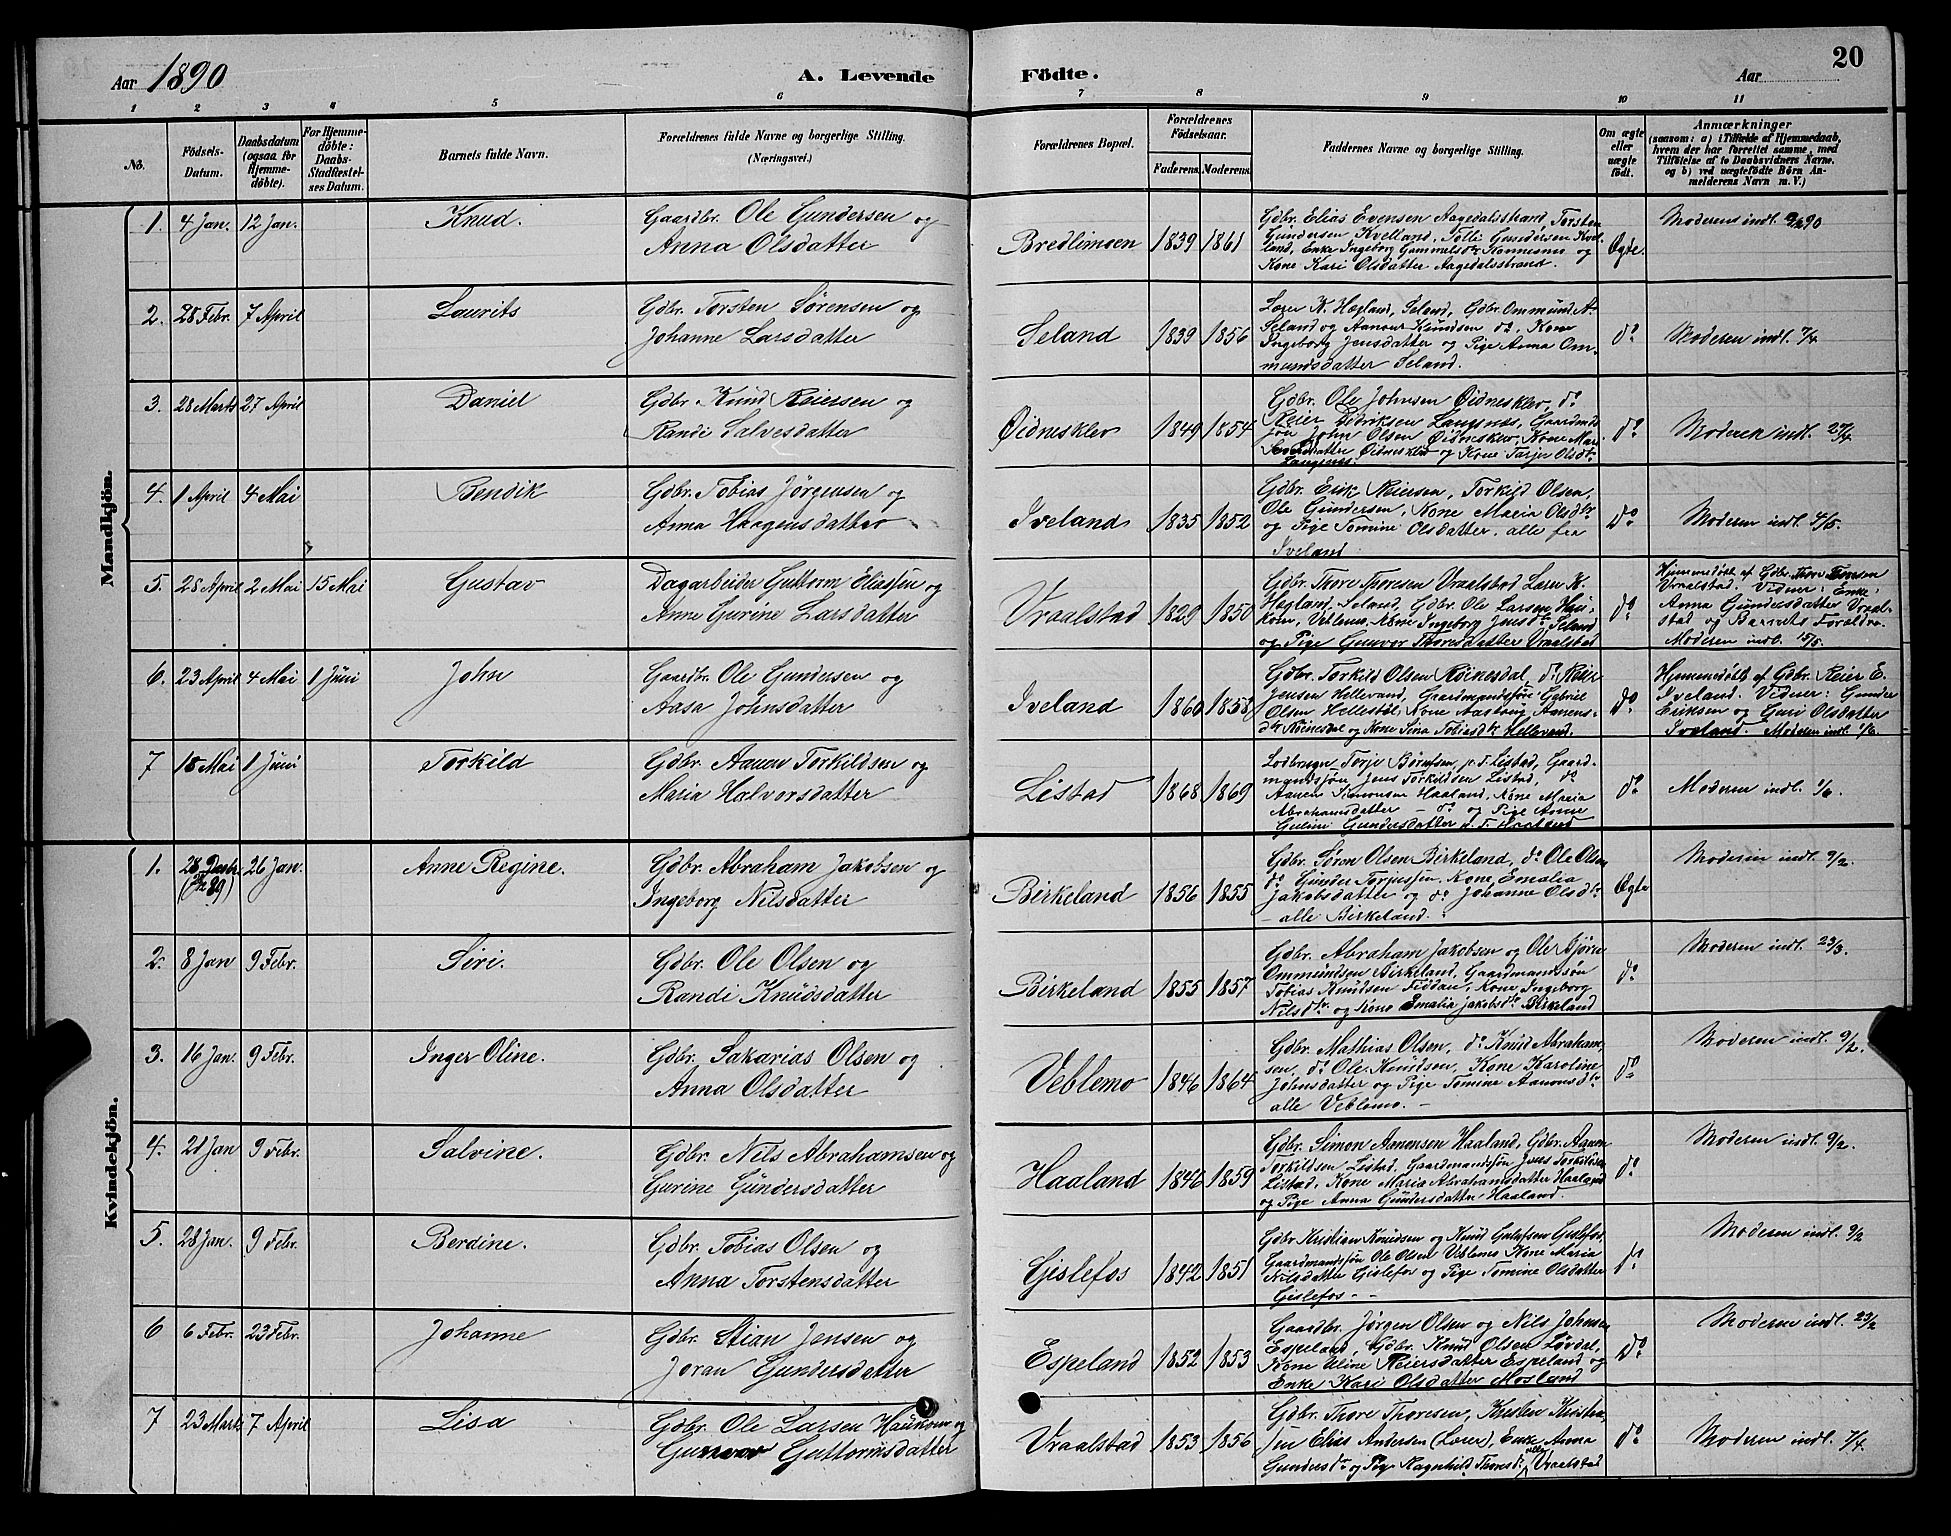 Aar 1890
A. Levende Födte.
Aar
20
1 2 3 4 5 6 7 8 9 10 11
No.
Födsels-Datum.
Daabsdatum (ogsaa for Hjemmedöbte).
For Hjemmedöbte: Daabs-Stadfæstelses Datum.
Barnets fulde Navn.
Forældrenes fulde Navne og borgerlige Stilling.
(Næringsvei.)
Forældrenes Bopæl.
Forældrenes Födselsaar.
Faderens. Moderens.
Faddernes Navne og borgerlige Stilling.
Om ægte eller uægte födt.
Anmærkninger
(saasom: a) i Tilfælde af Hjemmedaab, hvem der har forrettet samme, med Tilföielse af to Daabsvidners Navne. og b) ved uægtefödte Börn Anmelderens Navn m. V.)
Mandkjön.
1. 4 Jan. 12 Jan. Knud. Gaardbr. Ole Gundersen og
Anna Olsdatter
Bredlimsen 1839 1861
Gdbr. Elias Evensen Aagedalsstrand, Torsten
Gundersen Kvelland, Tolli Gundersen Kvel-
land, Enke Ingeborg Gammelsdtr og
Kone Kari Olsdatter Aagedalsstrand.
Ægte.
Moderens indl. 9/2 90
2. 28 Febr. 7 April Laurits Gdbr. Torsten Sørensen og
Johanne Larsdatter
Seland 1839 1856
Lærer K. Høgland, Seland, Gdbr. Ommund A.
Seland og Aanon Knudsen do, Kone
Ingeborg Jensdatter og Pige Anna Om-
mundsdatter Seland.
do
Moderen indl. 7/4
3. 28 Marts 27 April Daniel Gdbr. Knud Reiersen og
Randi Salvesdatter
Øidneskley 1849 1854
Gdbr. Ole Johnsen Øidneskley, do
Reier Didriksen Langnes, Gaardmds
søn John Olsen Øidneskley, Kone
Øidneskley og Kone Tarjer Olsdtr
Langenes.
do
Moderen indl. 27/4
4. 1 April 4 Mai Bendik Gdbr. Tobias Jörgensen og
Anna Haagensdatter
Iveland 1835 1852
Gdbr. Erik Reiersen, Torkild Olsen,
Ole Gundersen, Kone Maria Olsdtr
og Pige Tomine Olsdatter, alle fra
Iveland
do
Moderen indl. 4/5.
5. 28 April 2 Mai 15 Mai Gustav Dagarbeider Guttorm Eliassen og
Anne Gurine Larsdatter
Vraalstad 1829 1850
Gdbr. Thore Thoresen Vraalstad Lærer K.
Høgland, Seland, Gdbr. Ole Larsen Hau-
kom, Veblemo, Kone Ingeborg Jensdtr Seland
og Pige Gunvor Thoresdatter Vraalstad
do
Hjemmedöbt af Gdbr. Thore Thoresen
Vraalstad. Vidner: Enke
Anna Gundersdatter Vraal-
stad og Barnets Forældre.
Moderen indl. 15/5.
6. 23 April 4 Mai 1 Juni John Gaardbr. Ole Gundersen og
Aasa Johnsdatter
Iveland 1860 1858
Gdbr. Torkild Olsen Röinesdal, do Reier
Jensen Hellevand, Gaardmandssön Gabriel
Olsen Hellestöl, Kone Aasborg Aanens-
dtr Röinesdal og Kone Sina Tobiasdtr Hellevand.
do
Hjemmedöbt af Gdbr. Reier E.
Iveland. Vidner: Gunder
Eriksen og Guri Olsdatter
Iveland. Moderen indl. 1/6.
7 15 Mai 1 Juni Torkild Gdbr. Aanen Torkildsen og
Maria Halvorsdatter
Listad 1868 1869
Torje p. T. Listad, Gaard-
mandssön Jens Torkildsen Listad, do
Aanen Simonsen Haaland, Kone Maria
Abrahamsdatter do og Pige Anne
Guline Gundersdatter p. T. Haaland
do
Moderen indl. 1/6.
Kvindekjön.
1. 28 Decbr. 26 Jan. Anne Regine. Gdbr. Abraham Jakobsen og
Ingeborg Nilsdatter
Birkeland 1856 1855
Gdbr. Søren Olsen Birkeland, do Ole Olsen
do Gunder Torjussen, Kone Emalia
Jakobsdatter og do Johanne Olsdtr
- alle Birkeland.
Ægte
Moderen indl. 9/2.
2. 8 Jan 9 Febr. Siri. Gdbr. Ole Olsen og
Randi Knudsdatter
Birkeland 1855 1857
Gdbr. Abraham Jakobsen og Ole Bjørn
Ommundsen Birkeland, Gaardmandssøn
Tobias Knudsen Fiddan, Kone Ingeborg
Nilsdtr og Kone Emalia Jakobsdtr Birkeland
do
Moderen indl. 23/3.
3. 16 Jan. 9 Febr. Inger Oline. Gdbr. Sakarias Olsen og
Anna Olsdatter
Veblemo 1846 1864
Gdbr. Mathias Olsen, do Knud Abraham-
sen, do Ole Knudsen, Kone Karoline
Johnsdatter og Pige Tomine Aanonsdtr
alle Veblemo. -
do
Moderen indl. 9/2.
4. 21 Jan 9 Febr. Salvine. Gdbr. Nils Abrahamsen og
Gurine Gundersdatter
Haaland 1846 1859
Gdbr. Simon Aanensen Haaland, Gdbr. Aanen
Torkildsen Listad, Gaardmandssøn Jens Torkildsen
Listad, Kone Maria Abrahamsdatter Haaland
og Pige Anna Gundersdatter Haaland
do
Moderen indl. 9/2.
5. 28 Jan. 9 Febr. Berdine. Gdbr. Tobias Olsen og
Anna Torstensdatter
Gislefos 1842 1851
Gdbr. Kristian Knudsen og Knud Gislefos,
Gaardmandssøn Ole Olsen Veblemo Kone Maria
Nilsdatter Gislefos og Pige Tomine Olsdatter
Gislefos - -
do
Moderen indl. 9/2
6 6 Febr. 23 Febr. Johanne Gdbr. Stian Jensen og
Joran Gundersdatter
Espeland 1852 1853
Gaardbr. Jørgen Olsen og Nils Johnsen
Espeland, Gdbr. Knud Olsen Lördal,
Kone Eline Reiersdatter Espeland og
Enke Kari Olsdatter Mosland
do
Moderen indl. 23/2
7 23 Marts 7 April Lisa Gdbr. Ole Larsen Haukom og
Gunvor Guttormsdatter
Vraalstad 1853 1856
Gdbr. Thore Thoresen, Kristen Kristen-
sen Elias Andersen (Lærer), Enke Anna
Gundersdtr og Pige Ragnhild Thoresdtr alle Vraalstad
do
Moderen indl. 7/4.